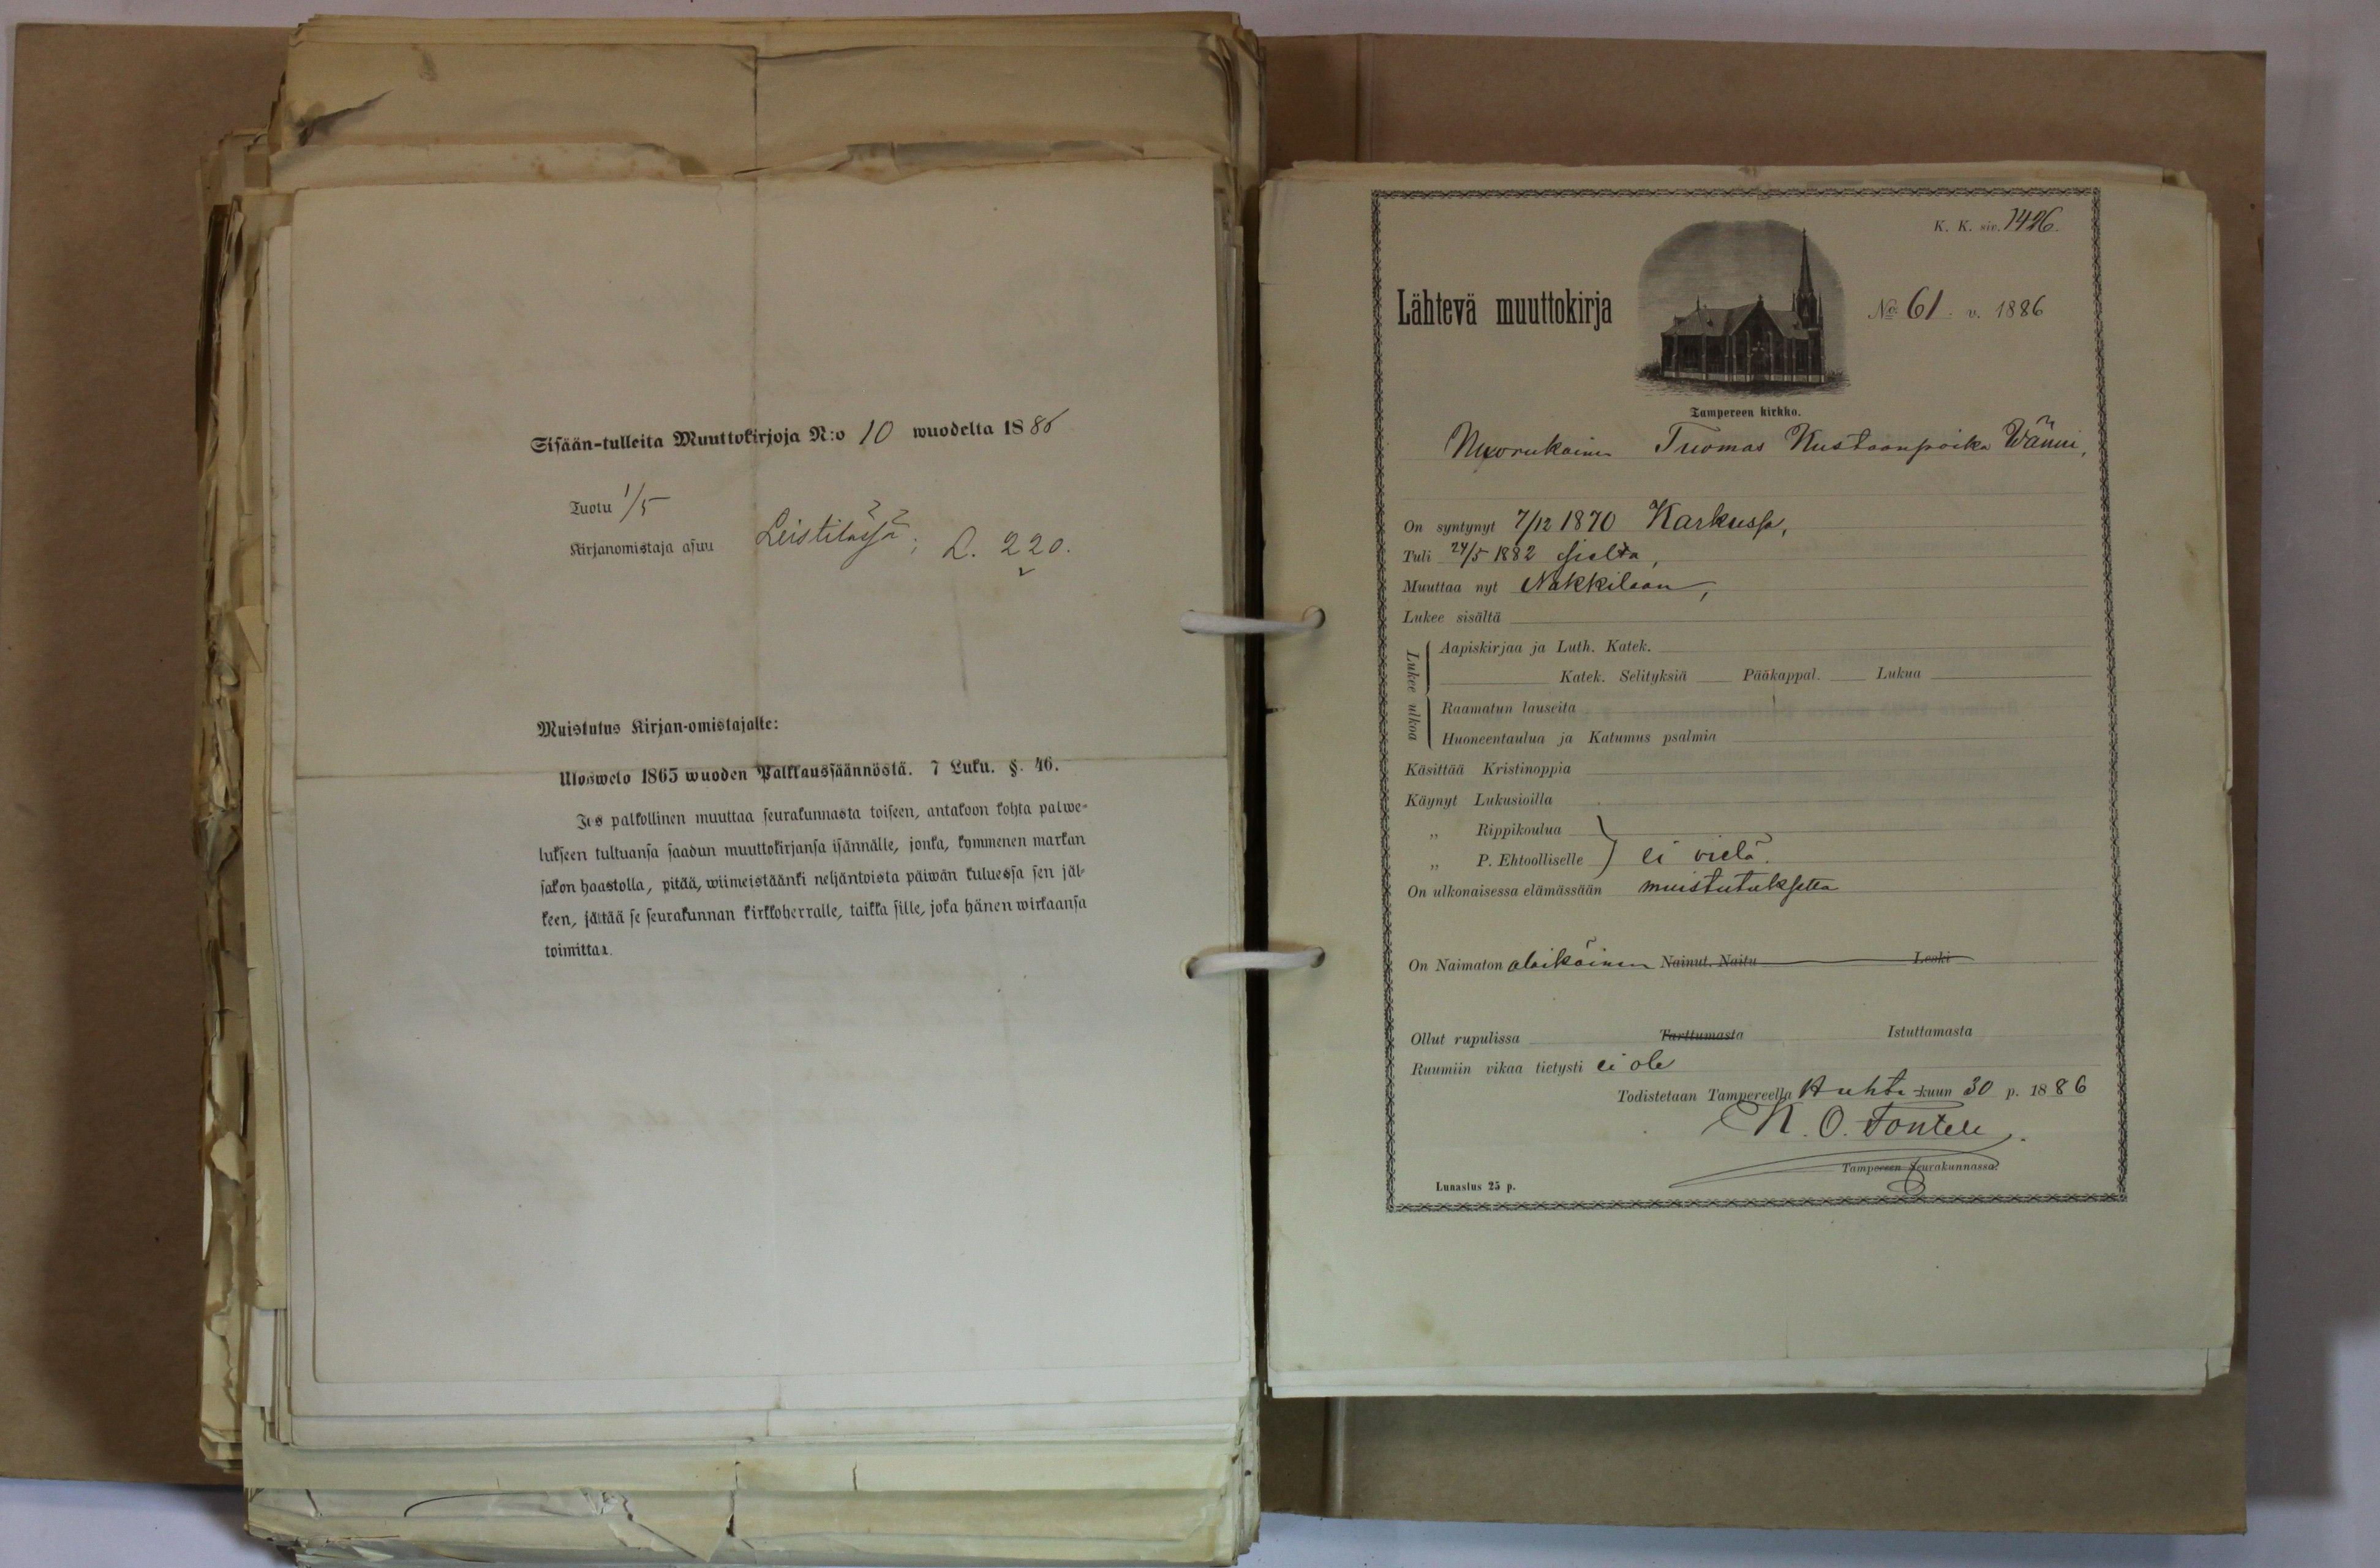 Sisään-tulleita Muuttokirjoja N:o 10 wuodelta 1886
Tuotu 1/5
Kirjanomistaja asuu Leistilässä; L. 220.
Muistutus Kirjan-omistajalle:
Uloswelo 1865 wuoden Palkkaussäännöstä. 7 Luku. §. 46.
Jos palkollinen muuttaa seurakunnasta toiseen, antakoon kohta palwe-
lukseen tultuansa saadun muuttokirjansa isännälle, jonka, kymmenen markan
sakon haastolla, pitää, wiimeistäänki neljäntoista päiwän kuluessa sen jäl-
keen, jättää se seurakunnan kirkkoherralle, taikka sille, joka hänen wirkaansa
toimittaa.
K. K. siv. 1426.
Lähtevä muuttokirja
No 61. v. 1886
Tampereen kirkko.
Nuorukainen Tuomas Kustaanpoika Wänni,
On syntynyt 7/12 1870 Karkussa,
Tuli 24/5 1882 sieltä,
Muuttaa nyt Nakkilaan,
Lukee sisältä
Lukee ulkoa
Aapiskirjaa ja Luth. Katek.
Katek. Selityksiä Pääkappal. Lukua
Raamatun lauseita
Huoneentaulua ja Katumus psalmia
Käsittää Kristinoppia
Käynyt Lukusioilla
„ Rippikoulua
„ P. Ehtoolliselle } ei vielä.
On ulkonaisessa elämässään muistutuksetta
On Naimaton alaikäinen Nainut. Naitu Leski
Ollut rupulissa Tarttumasta Istuttamasta
Ruumiin vikaa tietysti ei ole
Todistetaan Tampereella Huhti-kuun 30 p. 1886
K. O. Fontell.
Tampereen Seurakunnassa.
Lunastus 25 p.